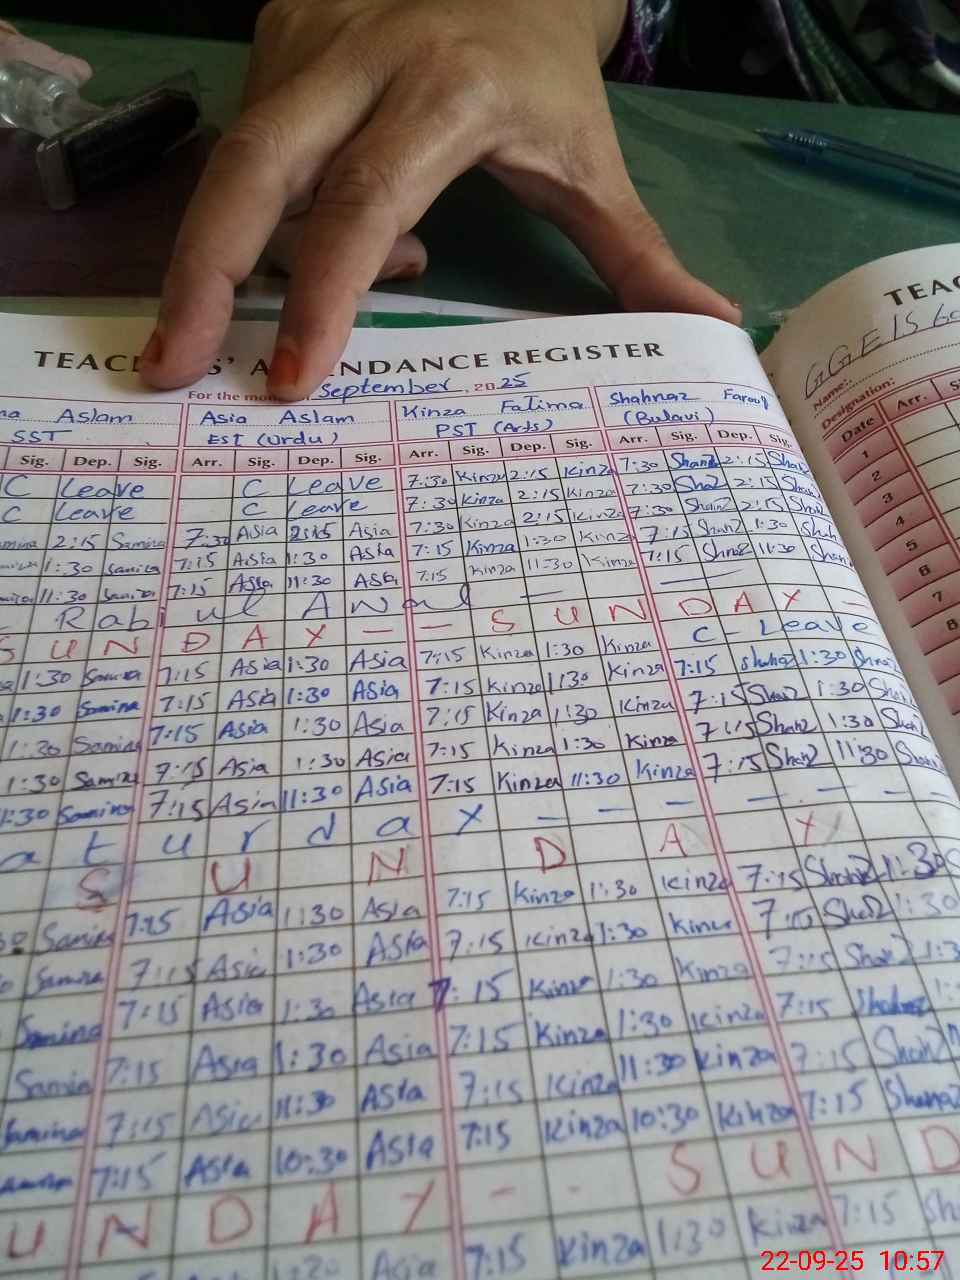 TEACHERS' ATTENDANCE REGISTER
For the month of September, 2025
Aslam Asia Aslam Kinza Fatima Shahnaz Farouq
SST EST (Urdu) PST (Arts) (Bulavi)
Sig. Dep. Sig. Arr. Sig. Dep. Sig. Arr. Sig. Dep. Sig. Arr. Sig. Dep. Sig.
C Leave C Leave 7:30 Kinza 2:15 Kinza 7:30 Shanz 2:15 Shah
C Leave C Leave 7:30 Kinza 2:15 Kinza 7:30 Shaz 2:15 Shah
2:15 Samina 7:30 Asia 2:15 Asia 7:30 Kinza 2:15 Kinza 7:30 2:15
1:30 Samina 7:15 Asia 1:30 Asia 7:15 Kinza 1:30 Kinza 7:15 1:30
11:30 Samina 7:15 Asia 11:30 Asia 7:15 Kinza 11:30 Kinza 7:15 11:30
Rabi ul Awal — — —
SUNDAY — — SUNDAY —
1:30 Samina 7:15 Asia 1:30 Asia 7:15 Kinza 1:30 Kinza C-Leave
1:30 Samina 7:15 Asia 1:30 Asia 7:15 Kinza 1:30 Kinza 7:15 1:30
1:30 Samina 7:15 Asia 1:30 Asia 7:15 Kinza 1:30 Kinza 7:15 1:30
1:30 Samina 7:15 Asia 1:30 Asia 7:15 Kinza 1:30 Kinza 7:15 1:30
11:30 Samina 7:15 Asia 11:30 Asia 7:15 Kinza 11:30 Kinza 7:15 11:30
aturday — — — — — —
SUNDAY
Samina 7:15 Asia 1:30 Asia 7:15 Kinza 1:30 Kinza 7:15 1:30
Samina 7:15 Asia 1:30 Asia 7:15 Kinza 1:30 Kinza 7:15 1:30
Samina 7:15 Asia 1:30 Asia 7:15 Kinza 1:30 Kinza 7:15
Samina 7:15 Asia 1:30 Asia 7:15 Kinza 1:30 Kinza 7:15
Samina 7:15 Asia 11:30 Asia 7:15 Kinza 11:30 Kinza 7:15
7:15 Asia 10:30 Asia 7:15 Kinza 10:30 Kinza 7:15
UNDAY - - SUND
Asia 7:15 Kinza 1:30 Kinza 7:15 Sh
TEAC
Name:
Designation:
Date Arr.
1
2
3
4
5
6
7
8
22-09-25 10:57